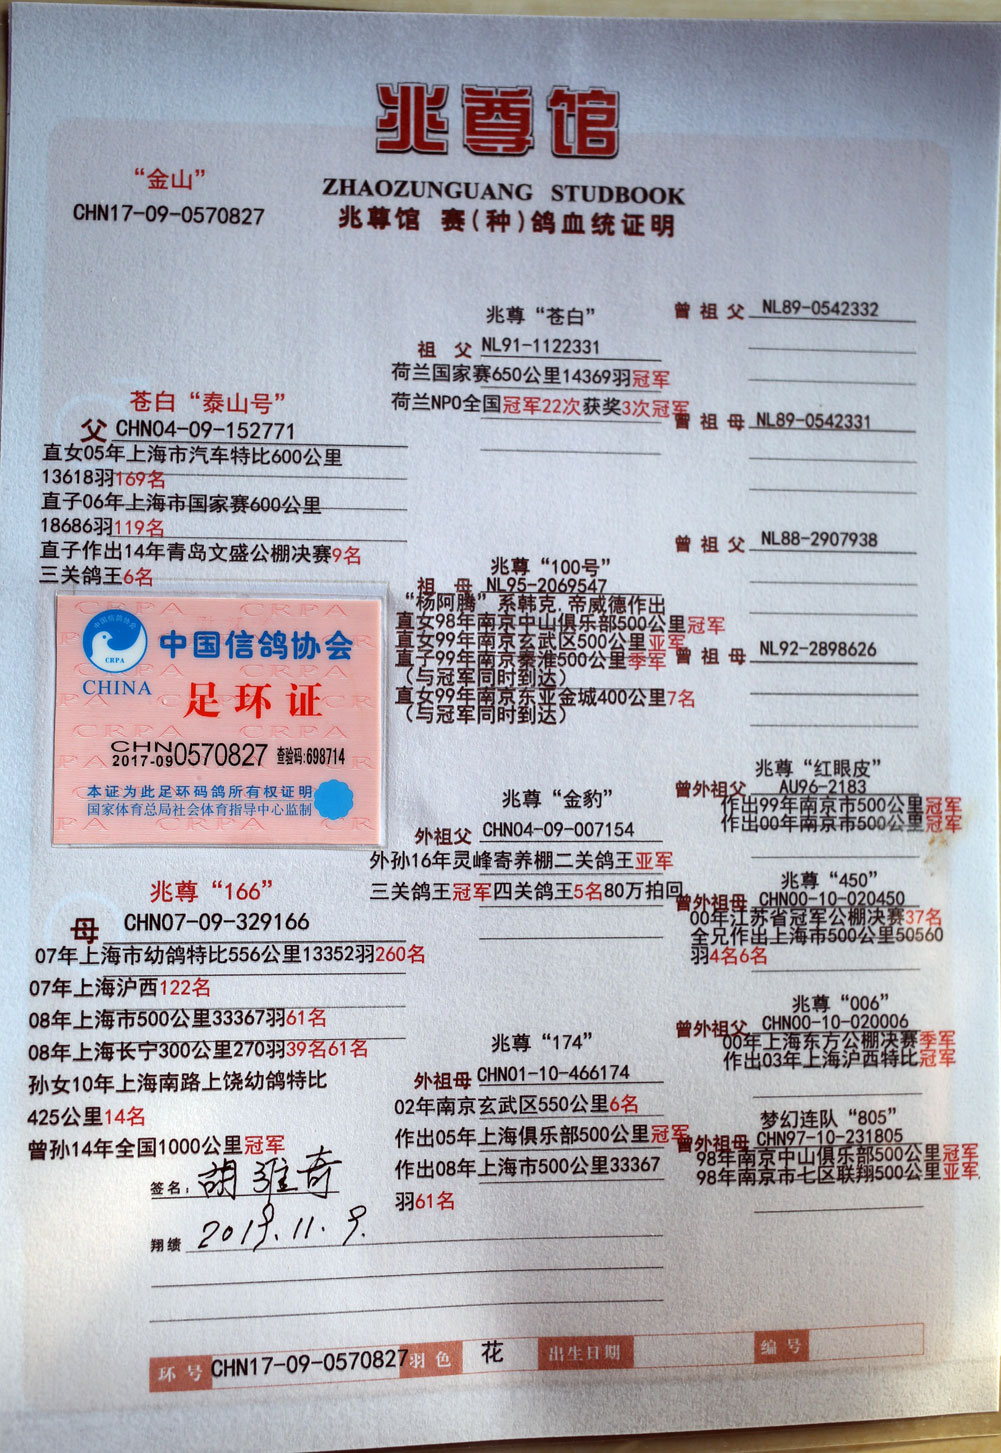 兆尊馆
ZHAOZUNGUANG STUDBOOK
兆尊馆 赛(种)鸽血统证明
“金山”
CHN17-09-0570827
苍白“泰山号”
父 CHN04-09-152771
直女05年上海市汽车特比600公里
13618羽169名
直子06年上海市国家赛600公里
18686羽119名
直子作出14年青岛文盛公棚决赛9名
三关鸽王6名
中国信鸽协会
CRPA
CHINA
足环证
CHN
2017-09 0570827 查验码:698714
本证为此足环码鸽所有权证明
国家体育总局社会体育指导中心监制
兆尊“166”
母 CHN07-09-329166
07年上海市幼鸽特比556公里13352羽260名
07年上海沪西122名
08年上海市500公里33367羽61名
08年上海长宁300公里270羽39名61名
孙女10年上海南路上饶幼鸽特比
425公里14名
曾孙14年全国1000公里冠军
兆尊“苍白”
祖 父 NL91-1122331
荷兰国家赛650公里14369羽冠军
荷兰NPO全国冠军22次获奖3次冠军
兆尊“100号”
祖 母 NL95-2069547
“杨阿腾”系韩克.帝威德作出
直女98年南京中山俱乐部500公里冠军
直女99年南京玄武区500公里亚军
直子99年南京秦淮500公里季军
（与冠军同时到达）
直女99年南京东亚金城400公里7名
（与冠军同时到达）
兆尊“金豹”
外祖父 CHN04-09-007154
外孙16年灵峰寄养棚二关鸽王亚军
三关鸽王冠军四关鸽王5名80万拍回
兆尊“174”
外祖母 CHN01-10-466174
02年南京玄武区550公里6名
作出05年上海俱乐部500公里冠军
作出08年上海市500公里33367
羽61名
曾 祖 父 NL89-0542332
曾 祖 母 NL89-0542331
曾 祖 父 NL88-2907938
曾 祖 母 NL92-2898626
兆尊“红眼皮”
曾外祖父 AU96-2183
作出99年南京市500公里冠军
作出00年南京市500公里冠军
兆尊“450”
曾外祖母 CHN00-10-020450
00年江苏省冠军公棚决赛37名
全兄作出上海市500公里50560
羽4名6名
兆尊“006”
曾外祖父 CHN00-10-020006
00年上海东方公棚决赛季军
作出03年上海沪西特比冠军
梦幻连队“805”
曾外祖母 CHN97-10-231805
98年南京中山俱乐部500公里冠军
98年南京市七区联翔500公里亚军.
签名: 胡雅奇
翔绩 2019.11.9.
环号 CHN17-09-0570827 羽色 花 出生日期 编号